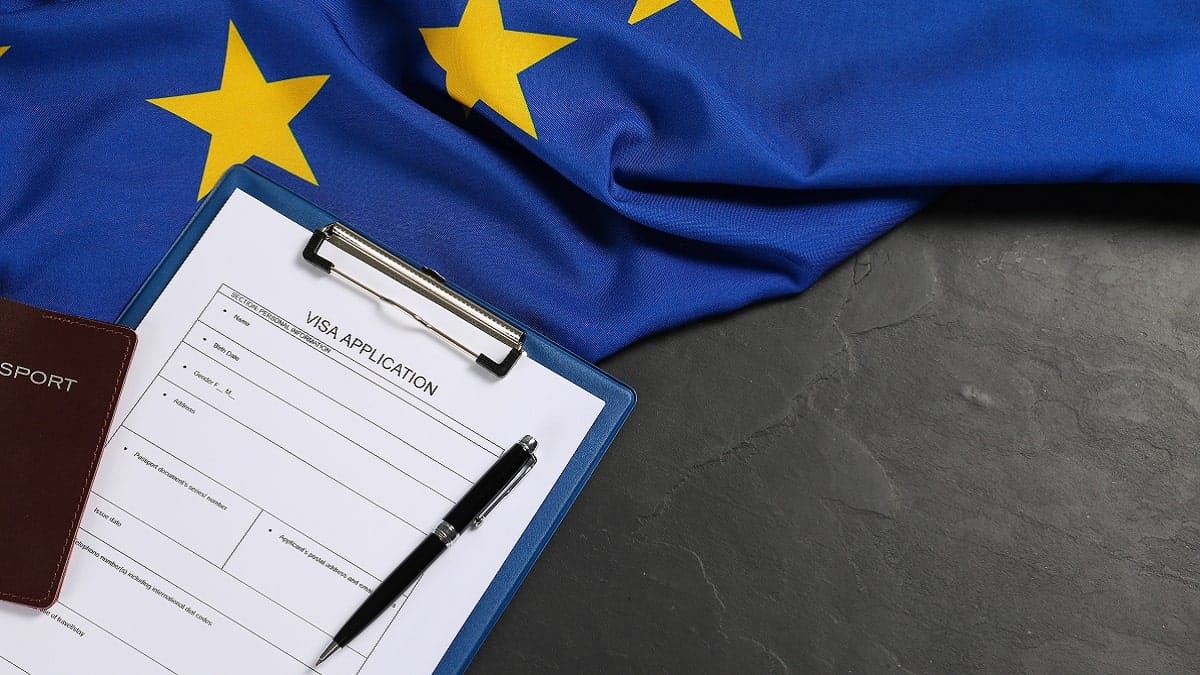 SPORT
VISA APPLICATION
SECTION: PERSONAL INFORMATION
• Name
• Birth Date
• Gender F__ M__
• Address
• Passport document's series/ number
Issue date
• Applicant's postal address and email
telephone number(s) including international dial codes
of travel/stay